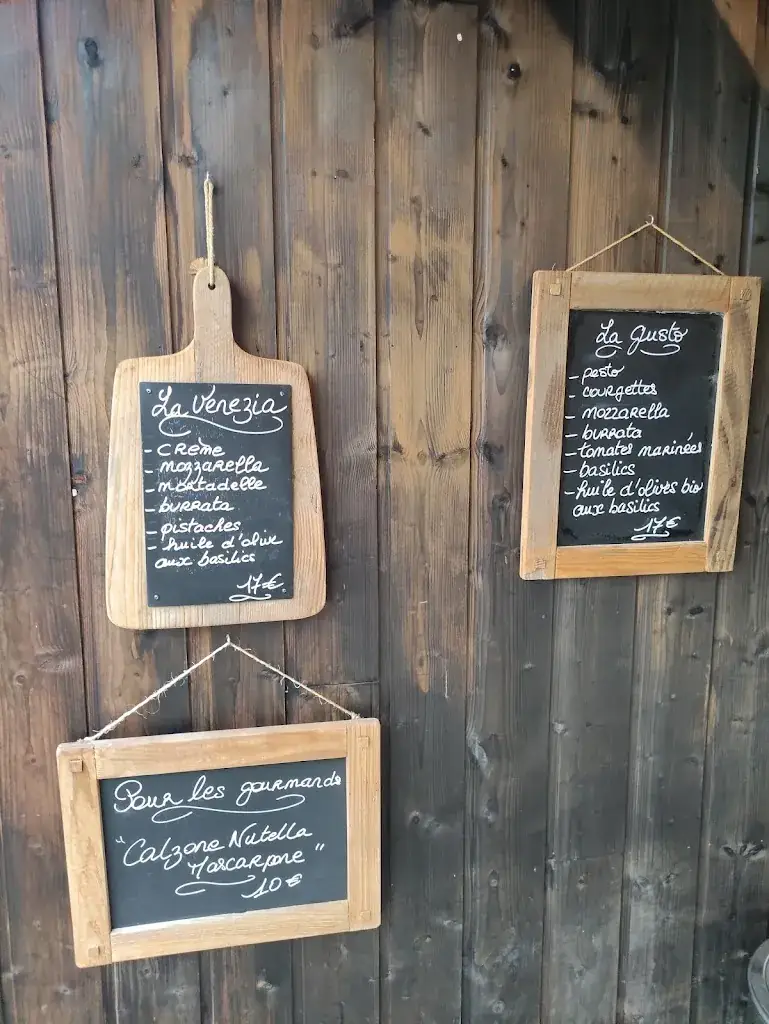 La Venezia
- crème
- mozzarella
- mortadelle
- burrata
- pistaches
- huile d'olive
aux basilics
17€
La Gusto
- pesto
- courgettes
- mozzarella
- burrata
- tomates marinées
- basilics
- huile d'olives bio
aux basilics
17€
Pour les gourmands
"Calzone Nutella
Mascarpone"
10€